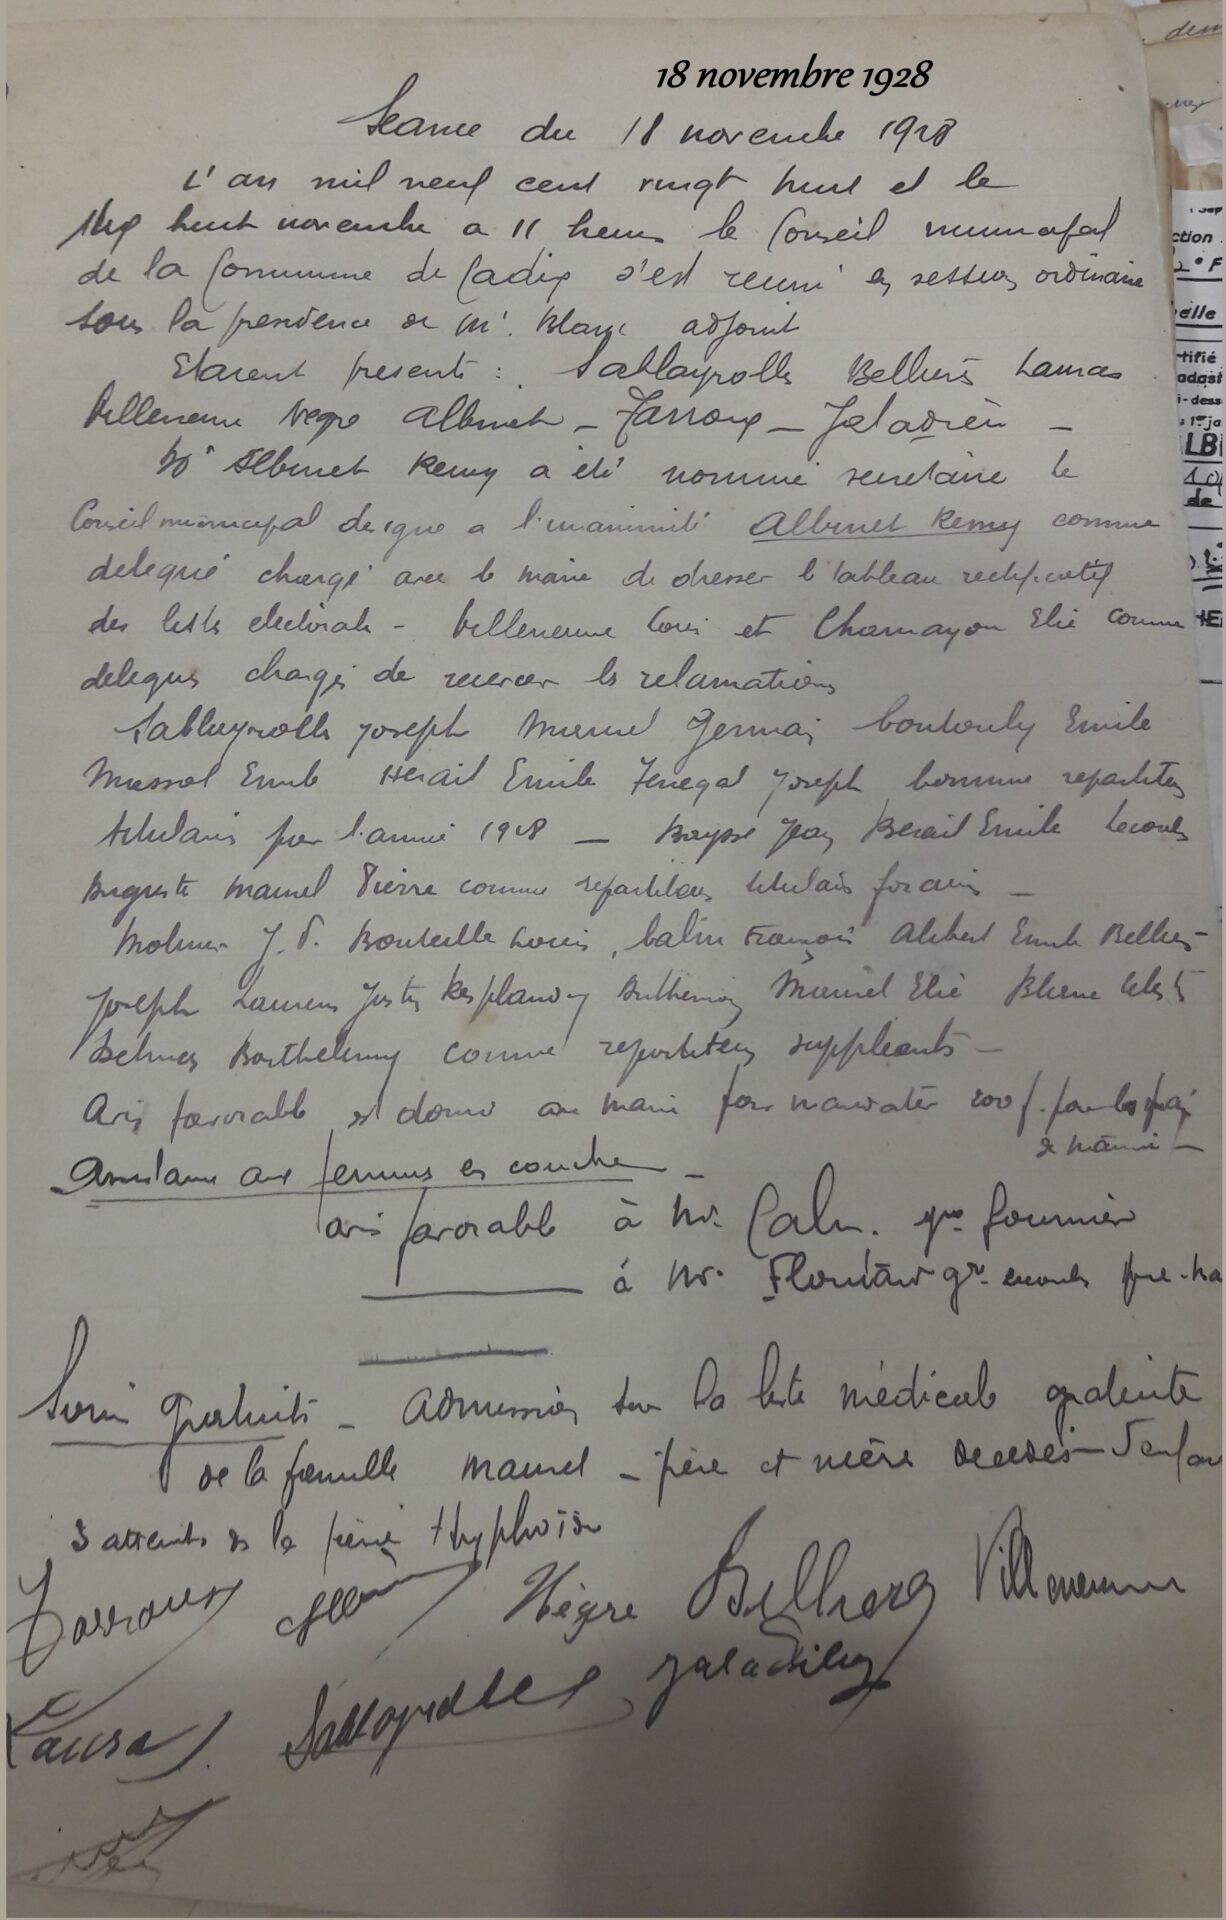 18 novembre 1928
Séance du 18 novembre 1928
L'an mil neuf cent vingt huit et le
dix huit novembre a 11 heures le Conseil municipal
de la Commune de Cadix s'est reuni en session ordinaire
sous la presidence de Mr. Blanc adjoint
Etaient presents : Sablayrolles Belliers Lauras
Villeneuve Negre Albinet – Farroux – Jaladieu –
Mr Albinet Remy a été nommé secretaire le
Conseil municipal designe a l'unanimité Albinet Remy comme
delegué chargé avec le maire de dresser le tableau rectificatif
des listes electorales – Villeneuve Louis et Chamayou Elie comme
delegues chargés de recevoir les reclamations
Sablayrolles Joseph Germain Emile
Massol Emile Emile Senegal Joseph comme repartiteurs
titulaires pour l'année 1928 – Jean Emile
Auguste Maurel Pierre comme repartiteurs titulaires forains –
J. Bouteille Louis, Calm François Alibert Emile Bellies
Joseph Laurens Justin Elie
Barthelemy comme repartiteurs suppleants –
Avis favorable est donné au maire pour mandater 200 f. pour les frais
de mairie –
Assistance aux femmes en couche –
avis favorable à Me. Calm. Fournier
à Me.
Soins gratuits – admission sur la liste médicale gratuite
de la famille Maurel – père et mère decedés – 5 enfan
3 atteints de la fièvre thyphoïde
Farroux Albinet Nègre Bellieres Villeneuve
Lauras Sablayrolles Jaladieu